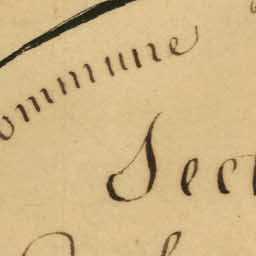 ommune
Sect